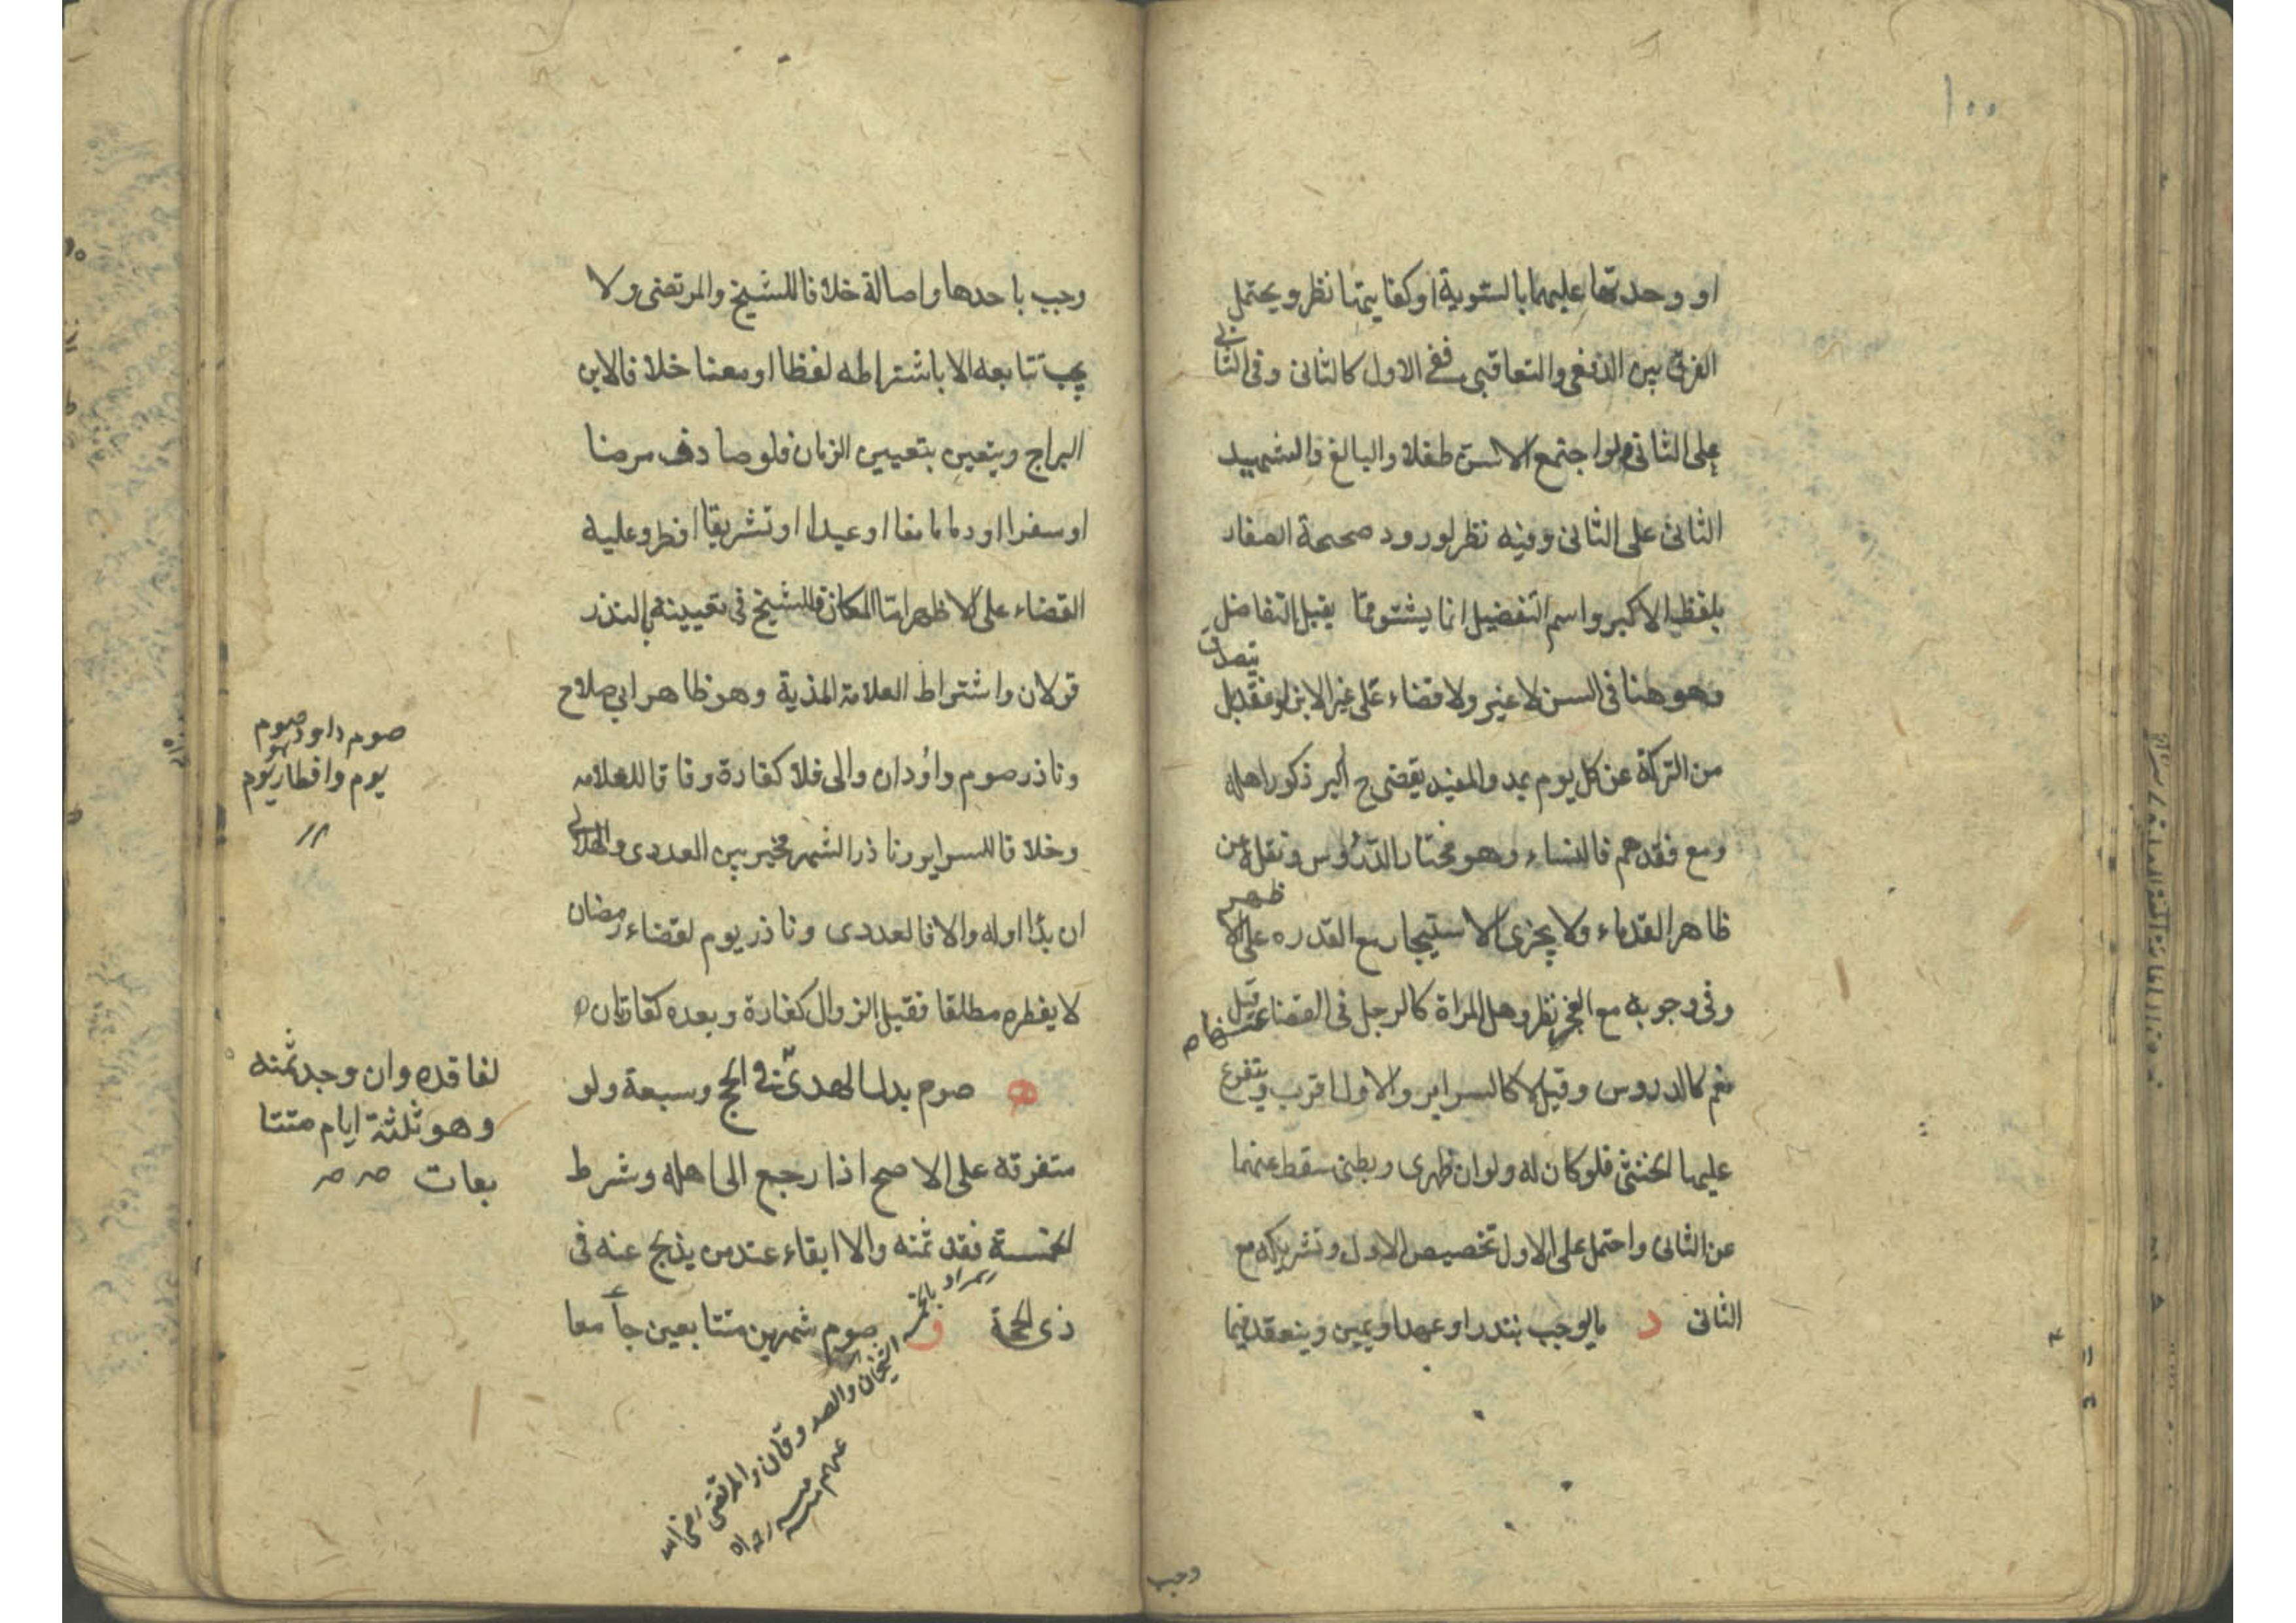 ١٠٠
او وحدتها عليهما بالسوية او كفاييتها نظر ويحتمل
الفرق بين الدفعى والتعاقبى ففى الاول كالثانى وفى الثانى
على الثانى ولو اجتمع الاسن طفلا والبالغ فالشهيد
الثانى على الثانى وفيه نظر لورود صحيحة الصفار
بلفظ الاكبر واسم التفضيل انما يشتق مما يقبل التفاضل
وهو هنا فى السن لا غير ولا قضاء على غير الابن لو فقد بل يتصدق
من التركة عن كل يوم بمد والمفيد يقضى ح اكبر ذكور اهله
ومع فقدهم فالنساء وهو مختار الدروس ونقله عن
ظاهر القدماء ولا يجزى الاستيجار مع القدره على الاظهر
وفى وجوبه مع العجز نظر وهل المراة كالرجل فى القضاء عنها قيل
نعم كالدروس وقيل لا كالسراير والاول اقرب ويتفرع
عليها الخنثى فلو كان له ولدان ظهرى وبطنى سقط عنهما
عن الثانى واحتمل على الاول تخصيص الاول وتشريكه مع
الثانى د ما يوجب بنذر او عهد او يمين وينعقد فيما
وجب
وجب باحدها واصالة خلافا للشيخ والمرتضى ولا
يجب تتابعه الا باشتراطه لفظا او معنا خلافا لابن
البراج ويتعين بتعيين الزمان فلو صادف مرضا
او سفرا او دما مانعا او عيدا او تشريقا افطر وعليه
القضاء على الاظهر اما المكان فللشيخ فى تعيينه بالنذر
قولان واشتراط العلامة المذية وهو ظاهر ابى صلاح
وناذر صوم داود ان والى فلا كفارة وفاقا للعلامه
وخلافا للسراير وناذر الشهر مخير بين العددى والهلالى
ان بدا اوله والا فالعددى وناذر يوم لقضاء رمضان
لا يفطره مطلقا فقيل الزوال كفارة وبعده كفارتان
ه صوم بدل الهدى فى الحج وسبعة ولو
متفرقه على الاصح اذا رجع الى اهله وشرط
الخمسة فقد ثمنه والا ابقاء عند من يذبح عنه فى
ذى الحجة و صوم شهرين متتابعين جامعا
صوم داود صوم
يوم وافطار يوم
لفاقده وان وجد ثمنه
وهو ثلثة ايام متتا
بعات صه صه
المراد بالخمسة
الشيخان والصدوقان والمرتضى رضى الله
عنهم منه رحمه الله